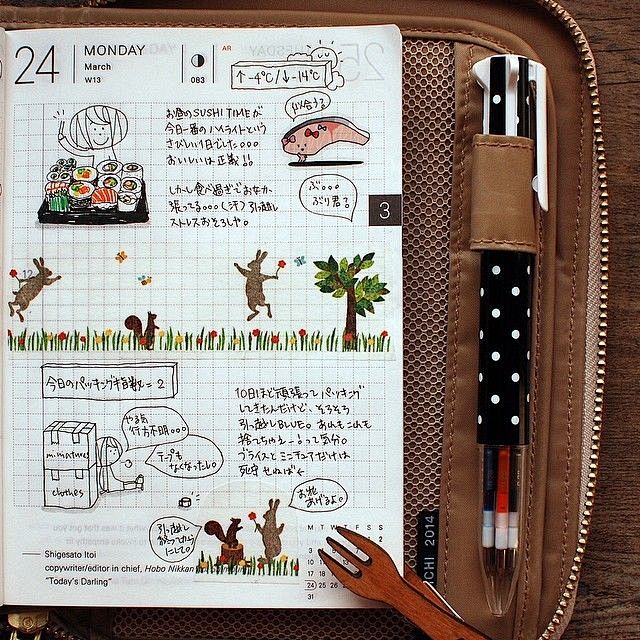 24
MONDAY
March
W13
083
AR
↑-4℃/↓-14℃
お昼のSUSHI TIMEが
今日一番のハイライトという
さびしい1日でした。。。
おいしいは正義!!
似合うる
しかし食べ過ぎでおなか
張ってる。。。(汗)引っ越し
ストレスおそろしや。
ぶ。。。
ぶり君?
3
12
今日のパッキング指数=2
やる気
行方不明。。。
テープも
なくなったし。
miniatures
clothes
10日ほど頑張ってパッキング
してきたんだけど、そろそろ
引っ越しBLUE。あれもこれも
捨てちゃえー!って気分。
ブライスとミニチュアだけは
死守せねば
お花
あげるよ。
引っ越し
終ってから
にして。
Shigesato Itoi
copywriter/editor in chief, Hobo Nikkan
"Today's Darling"
M T W T F S S
2
3
10
17
24
31
2014